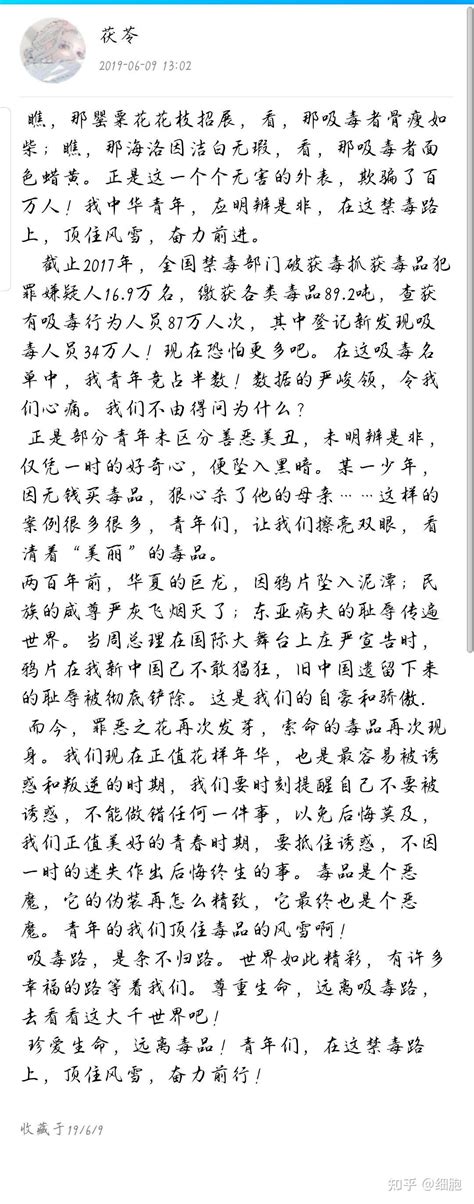 茯苓
2019-06-09 13:02
瞧，那罂粟花花枝招展，看，那吸毒者骨瘦如
柴；瞧，那海洛因洁白无瑕，看，那吸毒者面
色蜡黄。正是这一个个无害的外表，欺骗了百
万人！我中华青年，应明辨是非，在这禁毒路
上，顶住风雪，奋力前进。
截止2017年，全国禁毒部门破获毒抓获毒品犯
罪嫌疑人16.9万名，缴获各类毒品89.2吨，查获
有吸毒行为人员87万人次，其中登记新发现吸
毒人员34万人！现在恐怕更多吧。在这吸毒名
单中，我青年竞占半数！数据的严峻领，令我
们心痛。我们不由得问为什么？
正是部分青年未区分善恶美丑，未明辨是非，
仅凭一时的好奇心，便坠入黑暗。某一少年，
因无钱买毒品，狠心杀了他的母亲……这样的
案例很多很多，青年们，让我们擦亮双眼，看
清着“美丽”的毒品。
两百年前，华夏的巨龙，因鸦片坠入泥潭；民
族的威尊严灰飞烟灭了；东亚病夫的耻辱传遍
世界。当周总理在国际大舞台上庄严宣告时，
鸦片在我新中国已不敢猖狂，旧中国遗留下来
的耻辱被彻底铲除。这是我们的自豪和骄傲.
而今，罪恶之花再次发芽，索命的毒品再次现
身。我们现在正值花样年华，也是最容易被诱
惑和叛逆的时期，我们要时刻提醒自己不要被
诱惑，不能做错任何一件事，以免后悔莫及，
我们正值美好的青春时期，要抵住诱惑，不因
一时的迷失作出后悔终生的事。毒品是个恶
魔，它的伪装再怎么精致，它最终也是个恶
魔。青年的我们顶住毒品的风雪啊！
吸毒路，是条不归路。世界如此精彩，有许多
幸福的路等着我们。尊重生命，远离吸毒路，
去看看这大千世界吧！
珍爱生命，远离毒品！青年们，在这禁毒路
上，顶住风雪，奋力前行！
收藏于19/6/9
知乎 @细胞